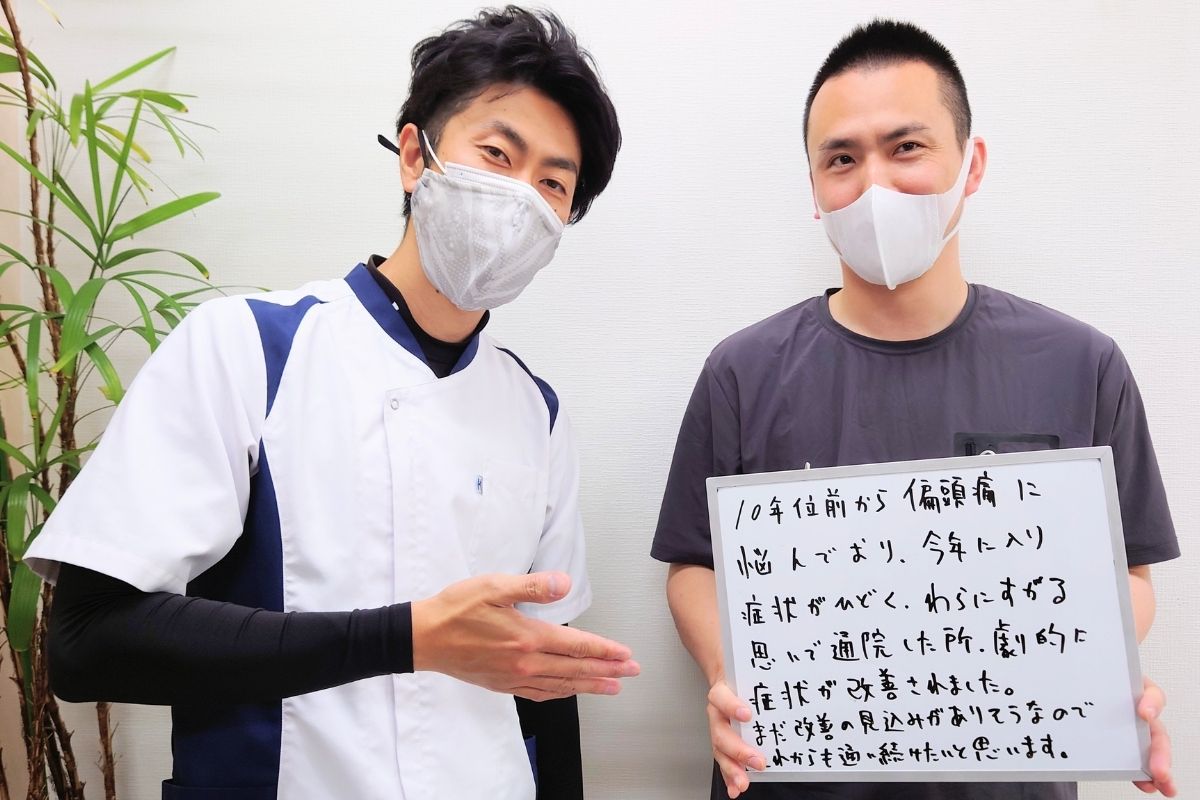 10年位前から偏頭痛に
悩んでおり、今年に入り
症状がひどく、わらにすがる
思いで通院した所、劇的に
症状が改善されました。
まだ改善の見込みがありそうなので
これからも通い続けたいと思います。